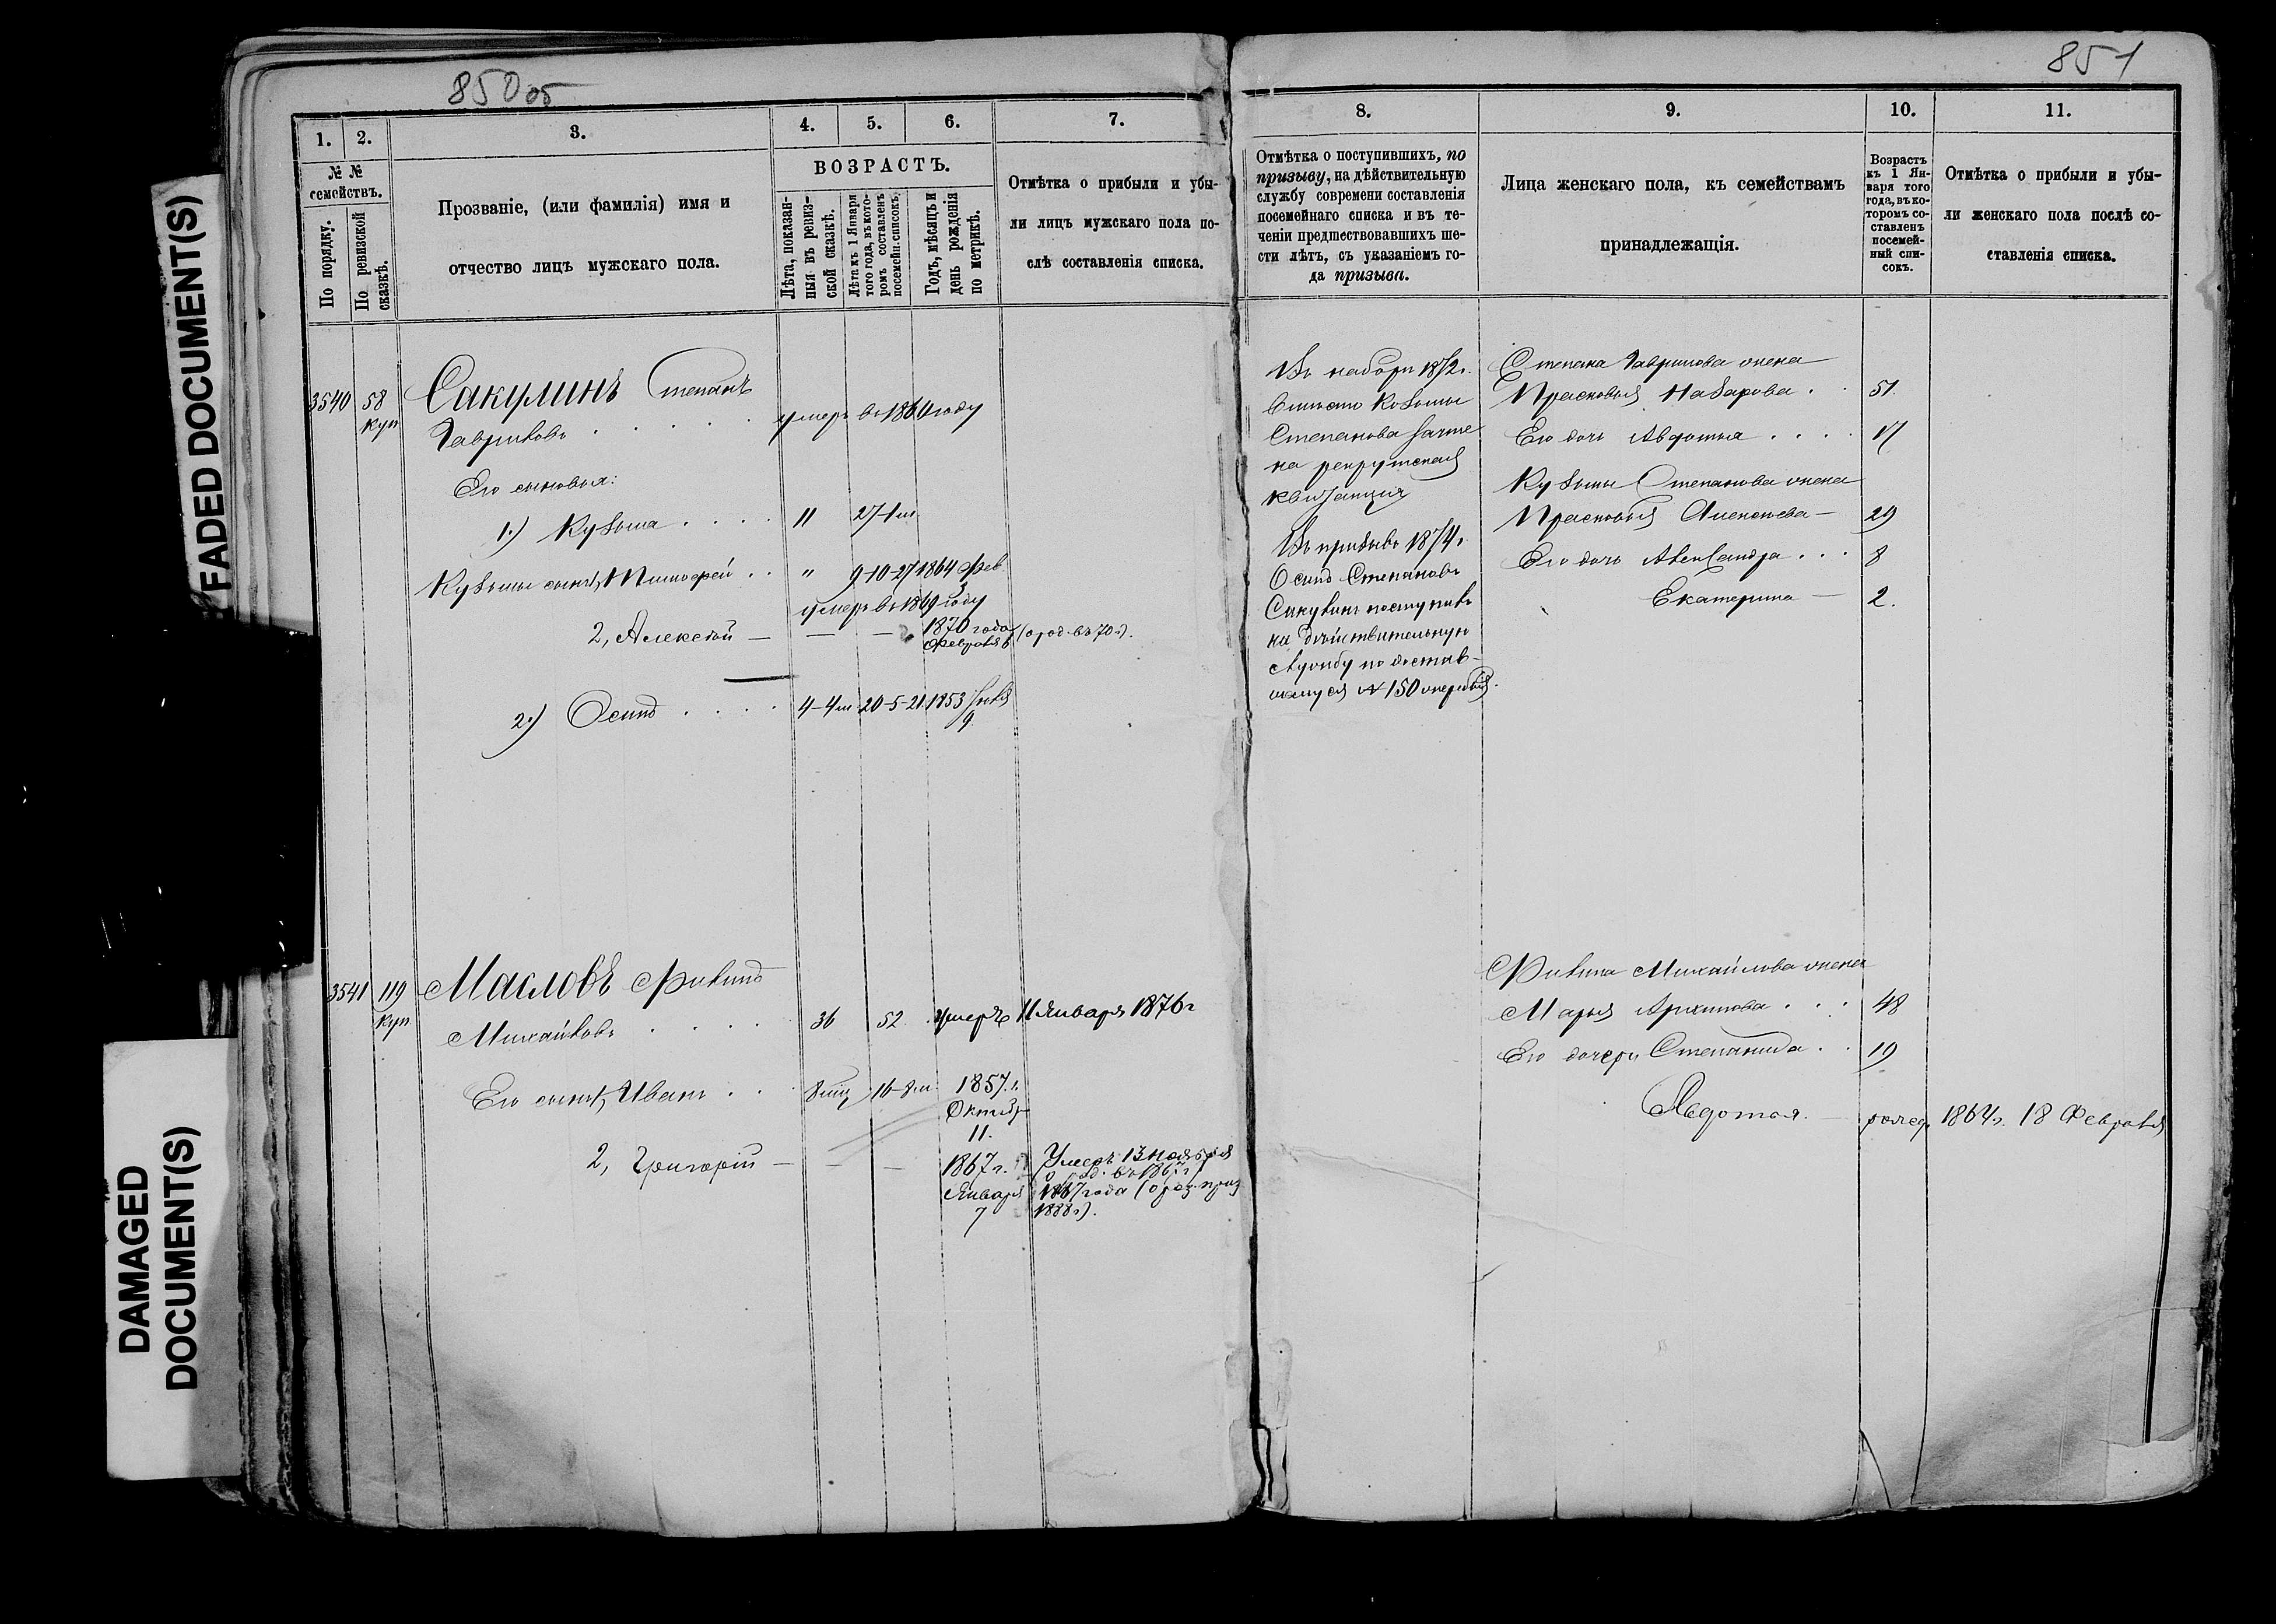 850 об
851
FADED DOCUMENT(S)
DAMAGED
DOCUMENT(S)
1.
2.
3.
4.
5.
6.
7.
№ №
семействъ.
По порядку.
По ревизской
сказкѣ.
Прозваніе, (или фамилія) имя и
отчество лицъ мужскаго пола.
ВОЗРАСТЪ.
Лѣта, показан-
ныя въ ревиз-
ской сказкѣ.
Лѣта къ 1 Января
того года, въ кото-
ромъ составленъ
посемейн. списокъ.
Годъ, мѣсяцъ и
день рожденія
по метрикѣ.
Отмѣтка о прибыли и убы-
ли лицъ мужскаго пола по-
слѣ составленія списка.
3540 58 Сакулинъ Степанъ
куп Гавриловъ умеръ въ 1860 году
Его сыновья:
1.) Кузьма 11 27-1 м.
Кузьмы сынъ 1, Тимофей " 9-10-27 1864 Фев
3
умеръ въ 1869 году
2, Алексѣй — — — 1870 года (о род. въ 70 г.).
Февраля 8
2.) Осипъ 4-4 м. 20-5-21. 1853 Іюля
9.
3541 119 Масловъ Филипъ
куп Михайловъ 36 52 умеръ 11 Января 1876 г
Его сынъ 1, Иванъ 8 мц 16-8 м. 1857. г.
Октяб
11.
2, Григорій — — — 1867 г. Умеръ 13 Ноября
(о род. въ 1867 г.)
Января 1867 года (о род. приз
7 1888 г.).
8.
9.
10.
11.
Отмѣтка о поступившихъ, по
призыву, на дѣйствительную
службу современи составленія
посемейнаго списка и въ те-
ченіи предшествовавшихъ ше-
сти лѣтъ, съ указаніемъ го-
да призыва.
Лица женскаго пола, къ семействамъ
принадлежащія.
Возрастъ
къ 1 Ян-
варя того
года, въ ко-
торомъ со-
ставленъ
посемей-
ный спи-
сокъ.
Отмѣтка о прибыли и убы-
ли женскаго пола послѣ со-
ставленія списка.
Въ наборъ 1872 г.
вмѣсто Козьмы
Степанова зачте
на рекрутская
квитанция
Въ призывъ 1874 г.
Осипъ Степановъ
Сакулинъ поступилъ
на дѣйствительную
службу по достав-
шемуся № 150 жеребью.
Степана Гаврилова жена
Прасковья Назарова 51.
Его дочь Авдотья 17
Кузьмы Степанова жена
Прасковья — 29
Его дочь Александра 8
Екатерина — 2.
Филипа Михайлова жена
Марья Архипова 48
Его дочери Степанида 19
Авдотья. — рожд. 1864 г. 18 Февраля